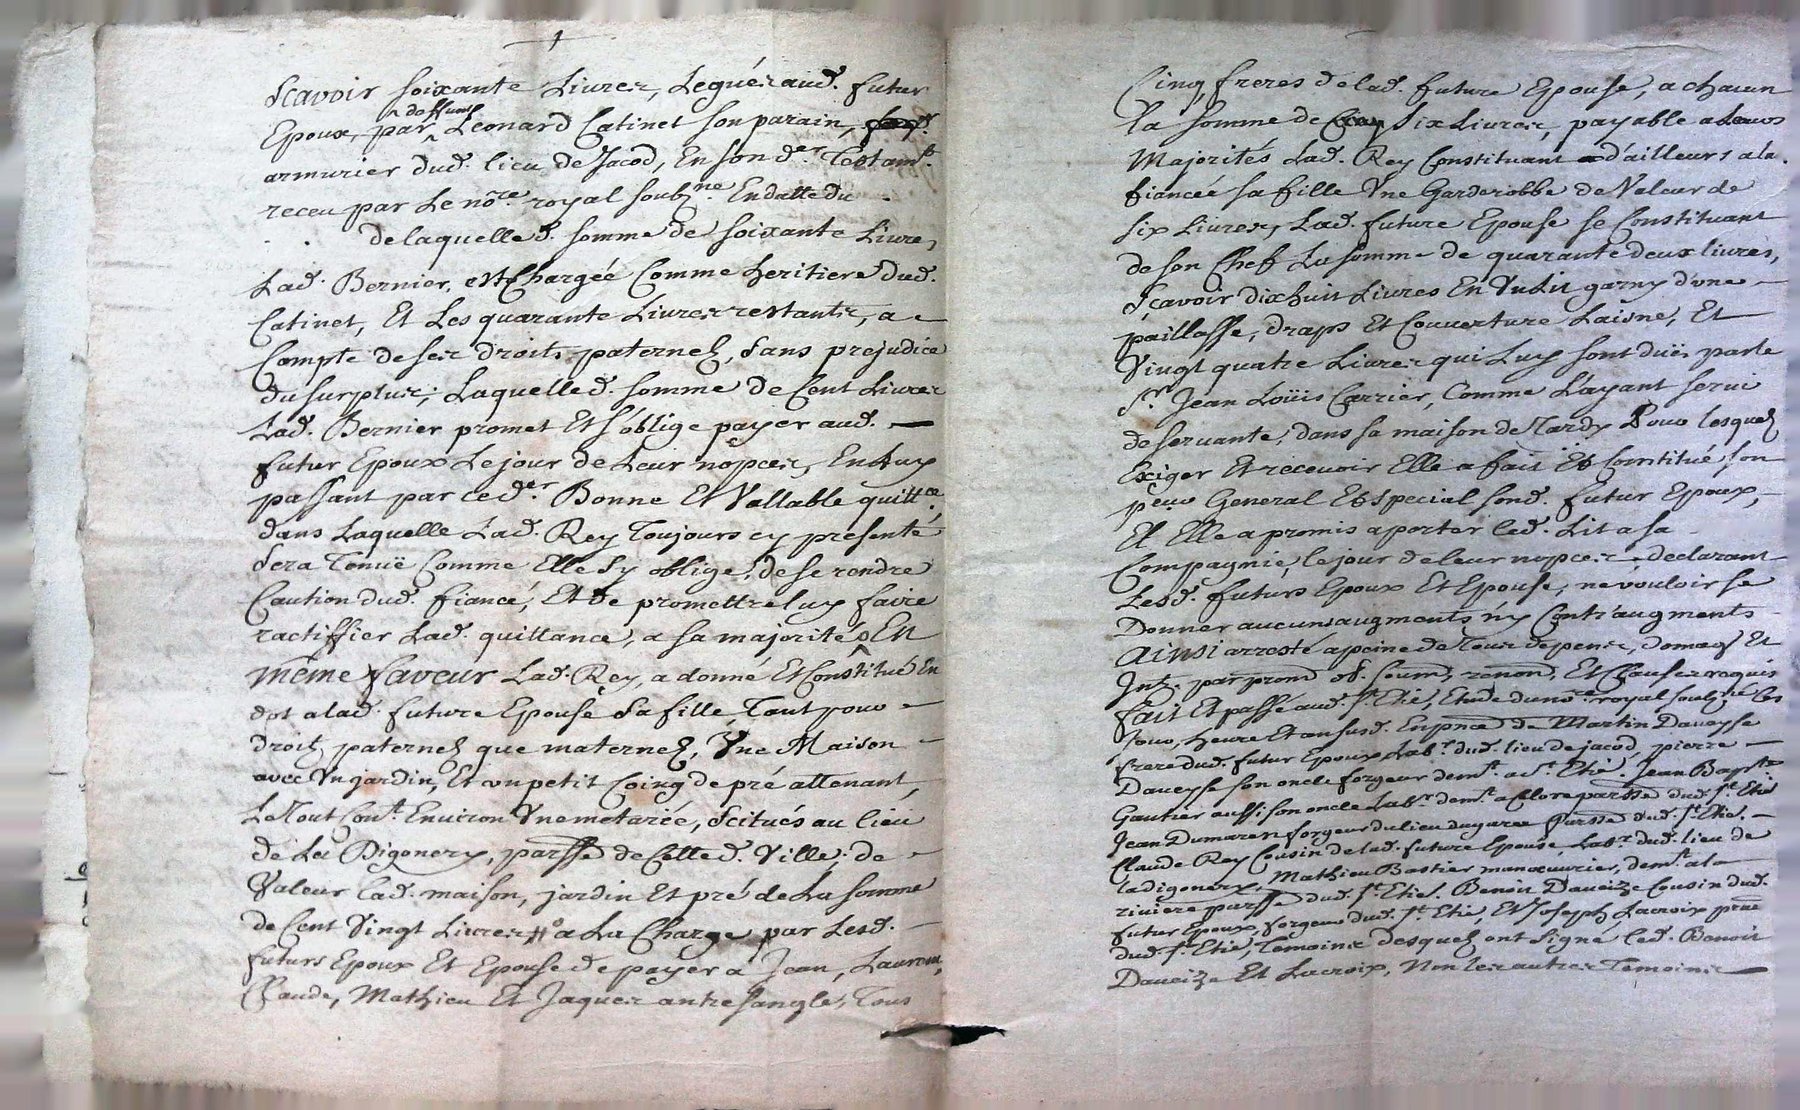 Scavoir soixante Livres, Legués aud. futur
Epoux, par deffunt Leonard Catinet son parain,
armurier dud. lieu de Jacod, En son d.er Testam.t
receu par Le no.re royal soubz.ne En datte du
de laquelle d. somme de soixante Livres
Lad. Bernier, est Chargée Comme heritiere dud.
Catinet, Et Les quarante Livres restants, a
Compte de ses droits paternelz, Sans prejudice
du surplus; Laquelle d. somme de Cent Livres
Lad. Bernier promet Et s'oblige payer aud.
futur Epoux Le jour de Leur nopces, En Luy
passant par ced.er Bonne Et Vallable quitt.ce
dans Laquelle Lad. Rey Toujours cy presente
Sera Tenuë Comme Elle s'y oblige, de se rendre
Caution dud. fiancé, Et de promettre luy faire
ractiffier Lad. quittance, a sa majorité, En
même faveur Lad. Rey, a donné Et Constitué En
dot a lad. future Epouse Sa fille, Tant pour
droits paternelz que maternelz, Vne Maison
avec Vn jardin, Et vn petit Coing de pré attenant,
Le Tout Con.t Environ Vne metarée, Scitués au lieu
de La Digonery, parsse de Cette d. Ville, de
Valeur lad. maison, jardin Et pré de La Somme
de Cent Vingt Livres, a La Charge par Lesd.
futurs Epoux Et Epouse de payer a Jean, Laurent,
Claude, Mathieu Et Jaques antresangles, Tous
Cinq freres de lad. future Epouse, a chacun
la somme de six Livres, payable a Leurs
Majorités Lad. Rey Constituant d'ailleurs a la
fiancée sa fille Vne Garderobbe de Valeur de
six Livres, Lad. future Epouse se Constituant
de son Chef La somme de quarante deux livres,
Sçavoir dix huit Livres En Vn Lit garny d'une
paillasse, draps Et Couverture Laisne, Et
Vingt quatre Livres qui Luy sont duës par le
S.r Jean Loüis Carrier, Comme L'ayant servi
de servante, dans sa maison de Tardy Pour lesquelz
Exiger Et recevoir Elle a fait Et Constitué, son
pcur General Et Special sond. futur Epoux,
Et Elle a promis aporter led. Lit a sa
Compagnie, le jour de leur nopces, declarant
Lesd. futurs Epoux Et Epouse, ne vouloir se
Donner aucuns augments n'y Contr'augments
Ainsi arresté a peine de Tous depens, domag. Et
Int. par prom. ob. soum. renon. Et Clauses requis
fait Et passé aud. S.t Etie, Etude du no.re royal soubz.né Les
jour, heure Et an susd. En pnce de Martin Daveyse
frere dud. futur Epoux, Lab.r dud. lieu de jacod, pierre
Daveyse son oncle forgeur dem.t a S.t Etie. Jean Bap.te
Gautier aussi son oncle Lab.r dem.t a Clore parsse dud. S.t Etie
Jean Dumaren forgeur du lieu dugaree parsse dud. S.t Etie.
Claude Rey Cousin de lad. future Epouse, Lab.r dud. lieu de
la digonery, Mathieu Bastier manoeuvrier, dem.t a la
riviere parsse dud. S.t Etie. Benoit Daveize Cousin dud.
futur Epoux, forgeur dud. S.t Etie, Et Joseph Lacroix prae
dud. S.t Etie, Temoins desquelz ont Signé led. Benoit
Daveize Et Lacroix, Non les autres Temoins